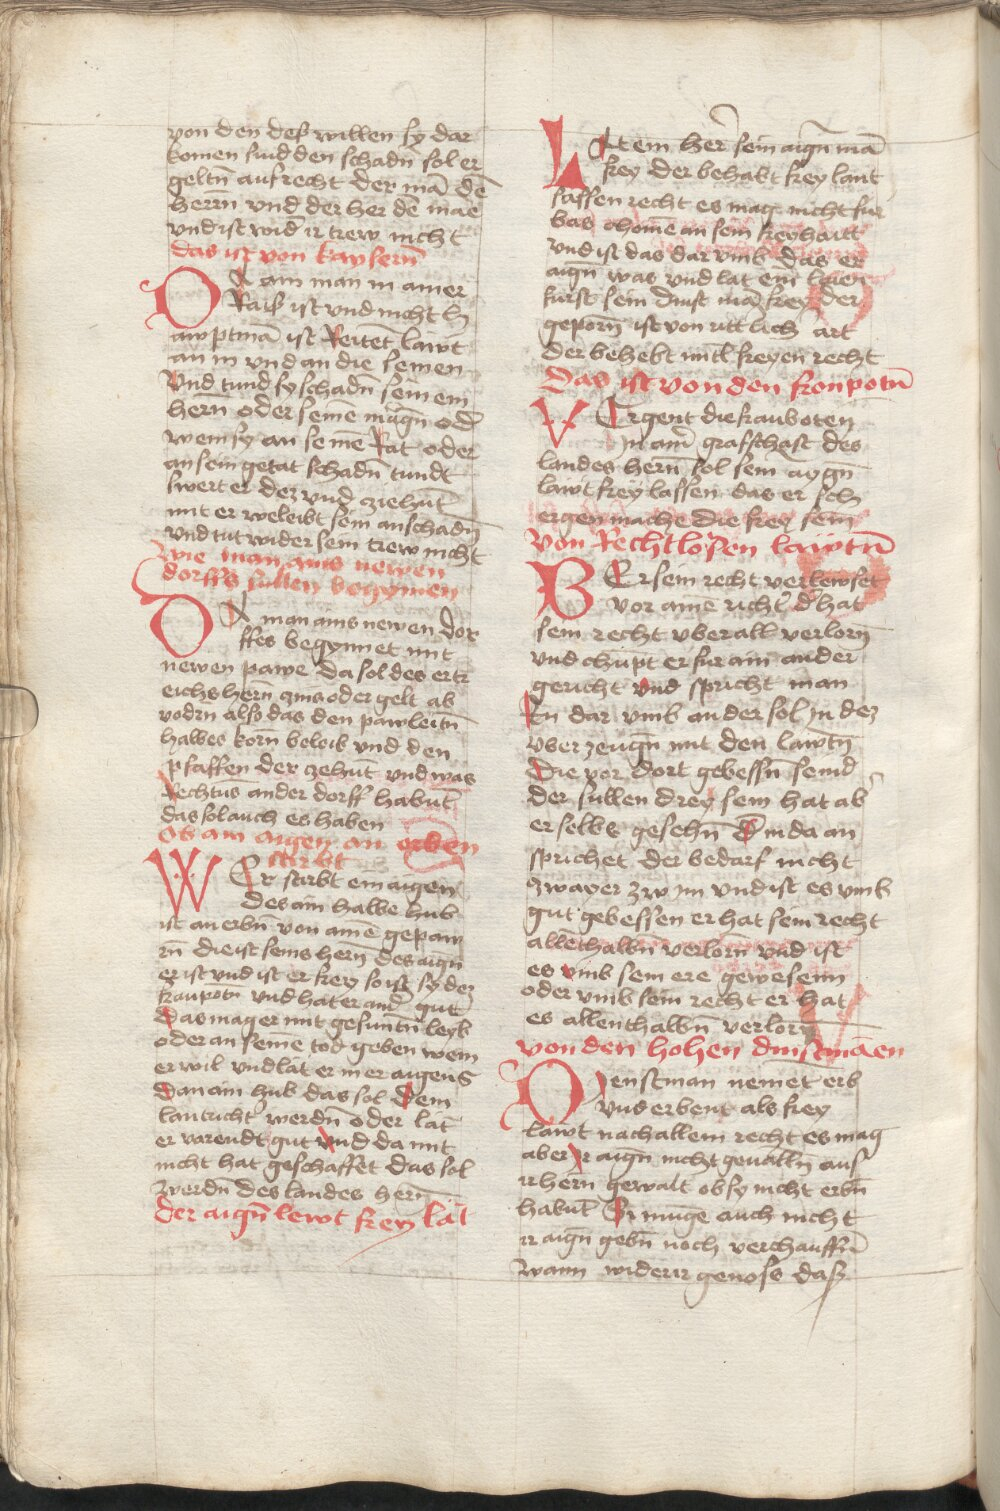 von den des willen sy dar
komen sind den schadn sol er
geltn̄ auf recht der mā dē
herrn̄ vnd der her dē māe
vnd ist wid ir trew nicht
das ist von kaysern̄
O Ain man in ainer
Rais ist vnd nicht h
awptmā ist Reitet lawt
an in vnd an die seinen
Vnd tund sy schadn̄ sein em
hern̄ oder seine māgn̄ od
wem sy an seinē Rat oder
an sein getat schadn̄ tundt
swert er dez vnd ziehūt
mit er weleibt sein an schadn̄
vnd tut wider sein trew nicht
wie man ains newen
dorffs sullen begynnen
O man ains newen dor
ffes begynnet mit
newen pawe da sol des ertr
eichs hern̄ zins oder gelt ab
vodrn̄ also das den pawleutn̄
halbes korn̄ beleib vnd den
pfaffen der zehūt vnd was
Rechtus ander dorff habūt
das sol auch es haben
Ob ain aigen an erben
stirbt
WEr stirbt ein aigen
des ain halbe hub
ist an erbn̄ von ainē gepaw
rn̄ die ist seins hern̄ des aign̄
er ist vnd ist er frey so ist sy dez
franpotn̄ vnd hat er and̄ gut
das mag er mit gesuntn̄ leyb
oder an seinē tod geben wem
er wil vnd lat er mer augens
dan ain hub das sol dem
lantricht̄ werdn̄ oder lāt
er varendt gut vnd da mit
nicht hat geschaffet das sol
zwerdn̄ des landes hern̄
der aign̄ lewt frey lāt
LAtem her sein aign̄ mā
frey der behabt frey lant
sassen recht es mag nicht fur
bas chomē an sein freyhaitt
vnd ist das dar vmb das er
aign̄ was vnd lat ein layen
furst sein dinst mā frey der
geporn̄ ist von ritt lich art
der behebt mitl freyen recht
das ist von den fronpotn̄
VErgent die frauboten
In ainr̄ grafschaft des
landes hern̄ sol sein aygn̄
lawt frey lassen das er sch
ergen mache die frey sein
von Rechtlosen lawtn̄
BEr sein recht verlewset
vor ainē richt̄ d̄ hat
sein recht vberall verlorn̄
vnd chūpt er fur ain ander
gericht vnd spricht man
In dar vmb an der sol in dez
vber zeugn̄ mit den lawtn̄
die vor dort gebessn̄ seind
der sullen drey sein hat ab
er selbs gesehn̄ Din da an
sprichet der bedarf nicht
zwayer zw im vnd ist es vmb
gut gebessen er hat sein recht
allenthalbn̄ verlorn̄ vnd ist
es vmb sein ere gewesenn
oder vmb sein recht er hat
es allenthalbn̄ verlorn̄
von den hohen dinstmāen
Dienstman nemet erb
vns erbent als frey
lawt nach allem recht es mag
aber ir aign̄ nicht geualln̄ aus
ir hern̄ gewalt ob sy nicht erbn̄
habūt Er muge auch nicht
ir aign̄ gebn̄ noch verchauffn̄
wann wider ir genoss dass